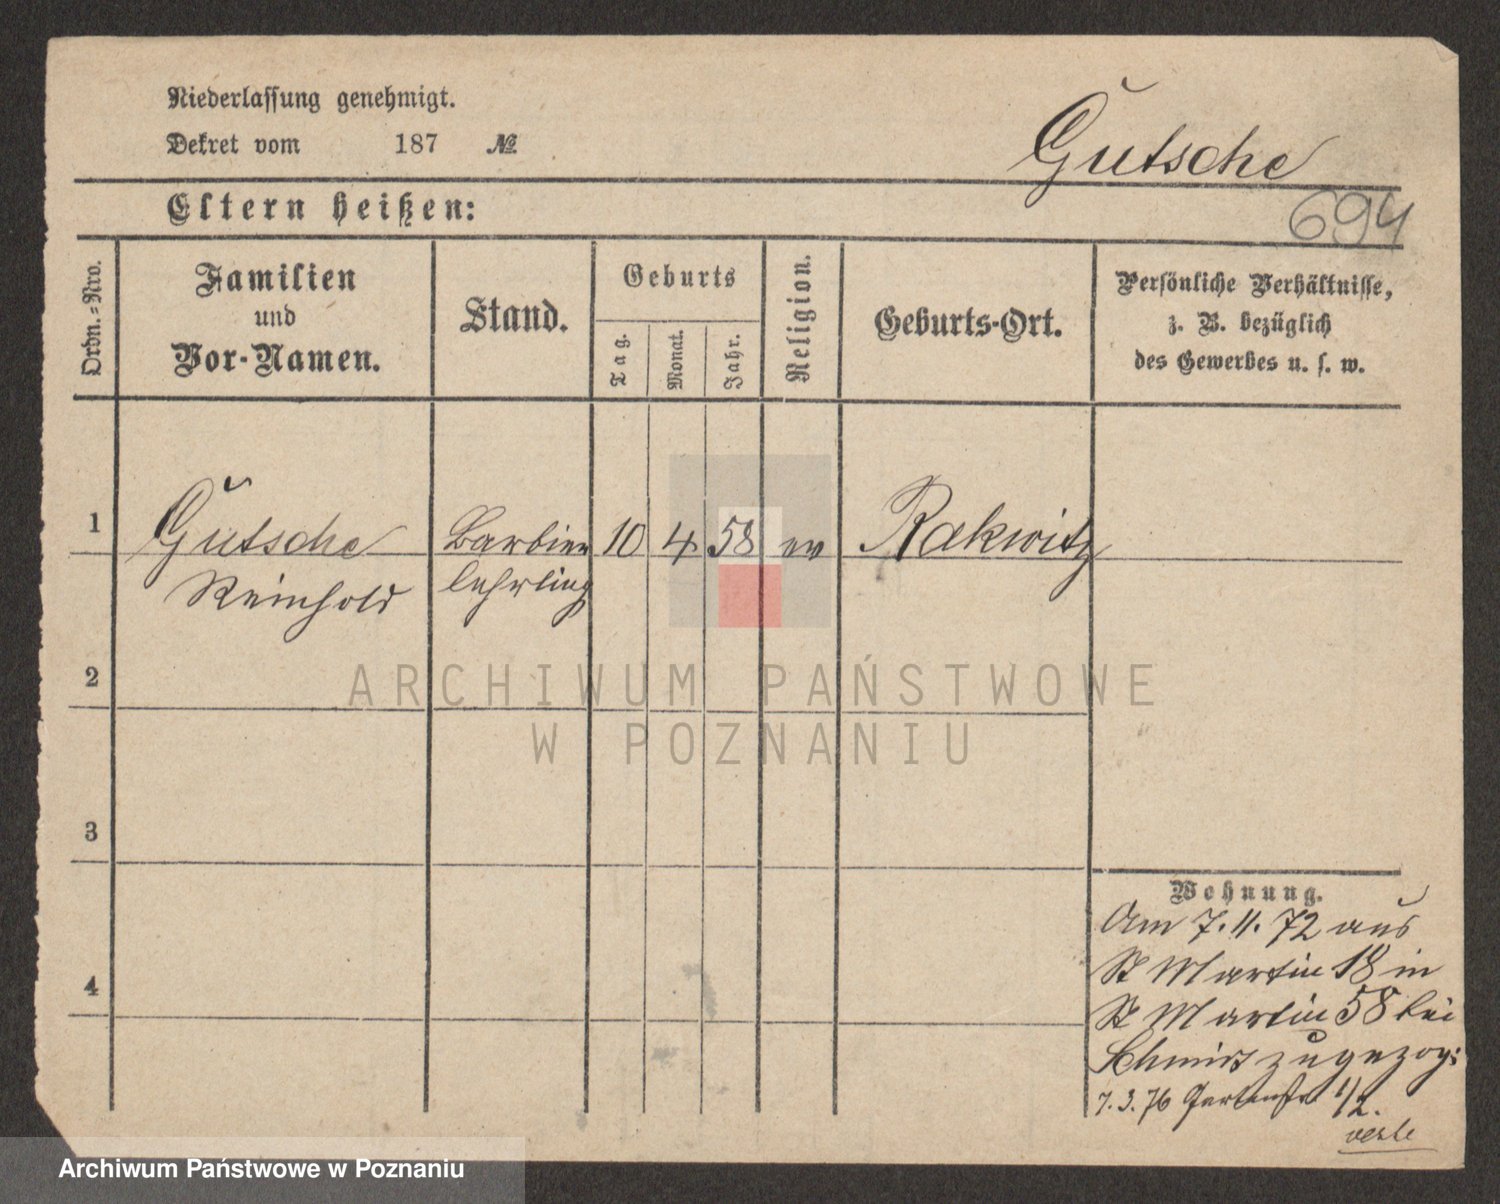 Niederlassung genehmigt.
Dekret vom 187 №
Gutsche
694
Eltern heißen:
Ordn.-Nro.
Familien
und
Vor-Namen.
Stand.
Geburts
Tag.
Monat.
Jahr.
Religion.
Geburts-Ort.
Persönliche Verhältnisse,
z. B. bezüglich
des Gewerbes u. s. w.
1 Gutsche Barbier 10 4 58 ev Rakwitz
Reinhold lehrling
2
3
4
Wohnung.
Am 7.11.72 aus
St Martin 18 in
St Martin 58 bei
Schmidt zugezog:
7.3.76 Gartenstr 1/2.
ARCHIWUM PAŃSTWOWE
W POZNANIU
Archiwum Państwowe w Poznaniu